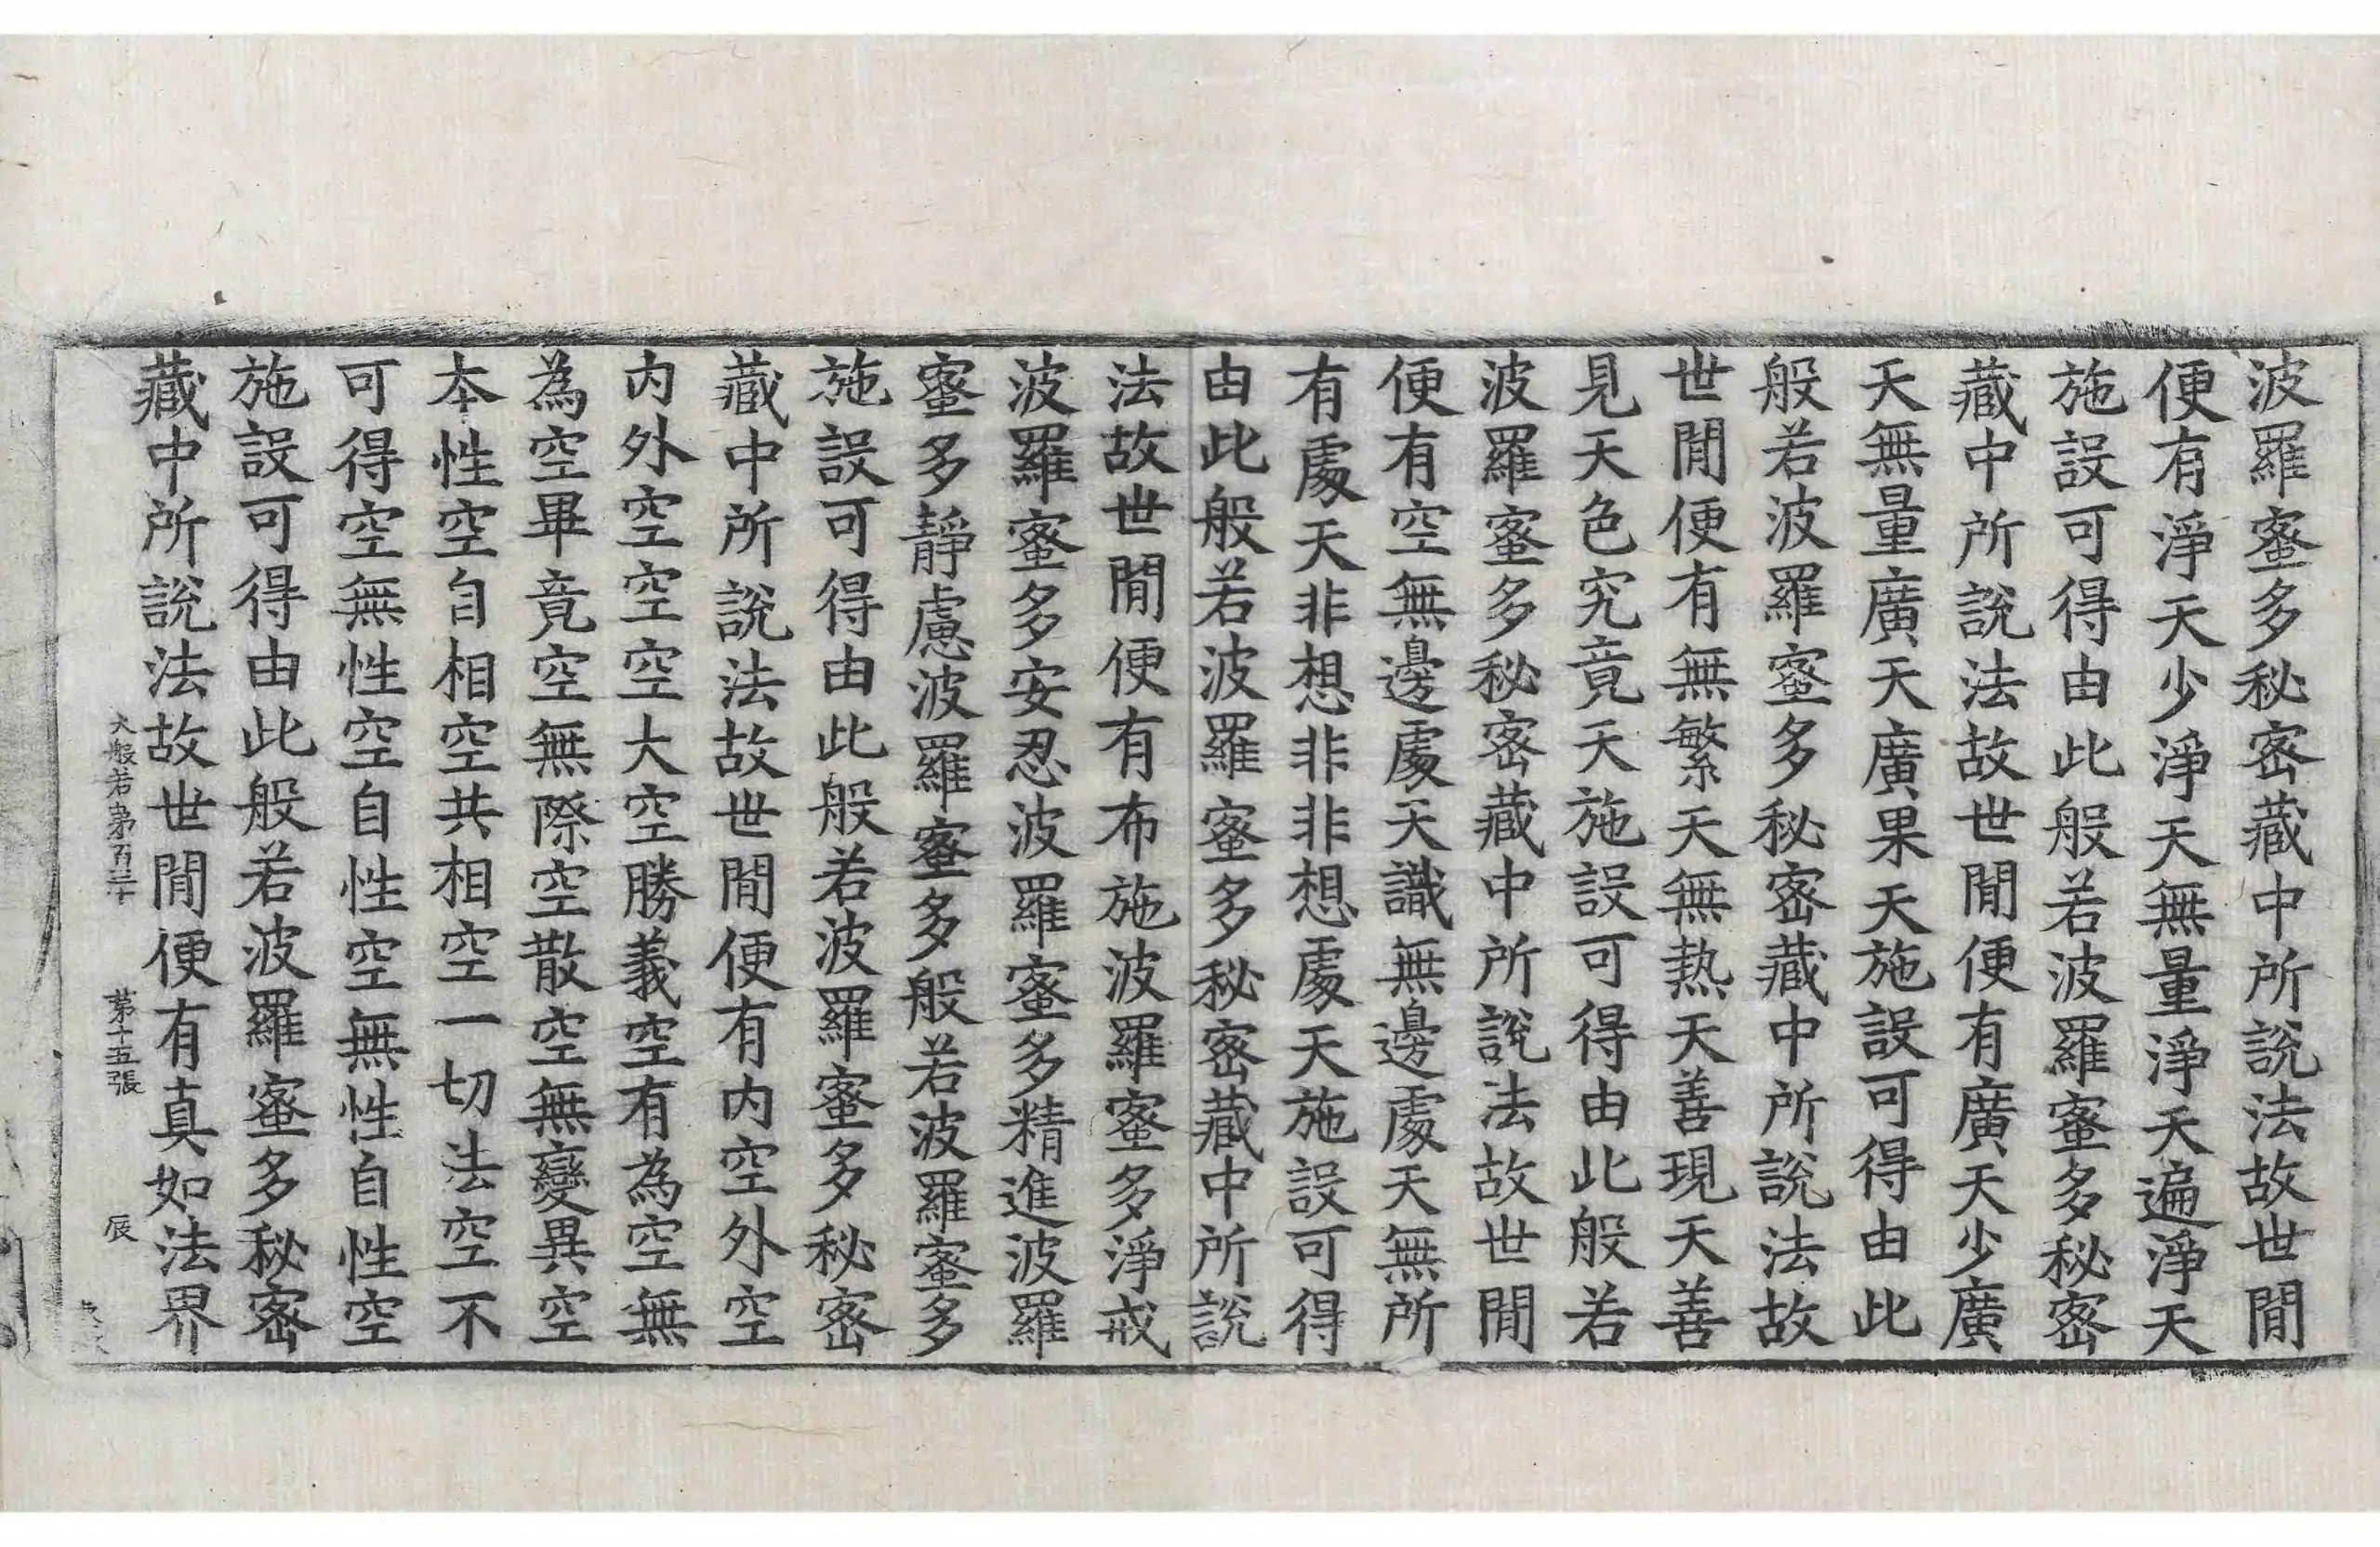 波羅蜜多秘密藏中所說法故世間
便有淨天少淨天無量淨天遍淨天
施設可得由此般若波羅蜜多秘密
藏中所說法故世間便有廣天少廣
天無量廣天廣果天施設可得由此
般若波羅蜜多秘密藏中所說法故
世間便有無繁天無熱天善現天善
見天色究竟天施設可得由此般若
波羅蜜多秘密藏中所說法故世間
便有空無邊處天識無邊處天無所
有處天非想非非想處天施設可得
由此般若波羅蜜多秘密藏中所說
法故世間便有布施波羅蜜多淨戒
波羅蜜多安忍波羅蜜多精進波羅
蜜多靜慮波羅蜜多般若波羅蜜多
施設可得由此般若波羅蜜多秘密
藏中所說法故世間便有內空外空
內外空空空大空勝義空有為空無
為空畢竟空無際空散空無變異空
本性空自相空共相空一切法空不
可得空無性空自性空無性自性空
施設可得由此般若波羅蜜多秘密
藏中所說法故世間便有真如法界
大般若第百三十 第十五張 辰